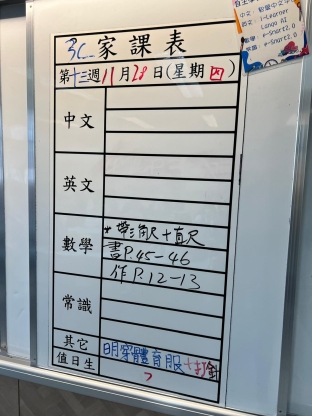 3C 家課表
第十三週11月28日(星期四)
中文
英文
數學
* 帶三角尺+直尺
書P.45-46
作P.12-13
常識
其它
明穿體育服
值日生
i-Learner
e-Smart2.0
e-Smart2.0